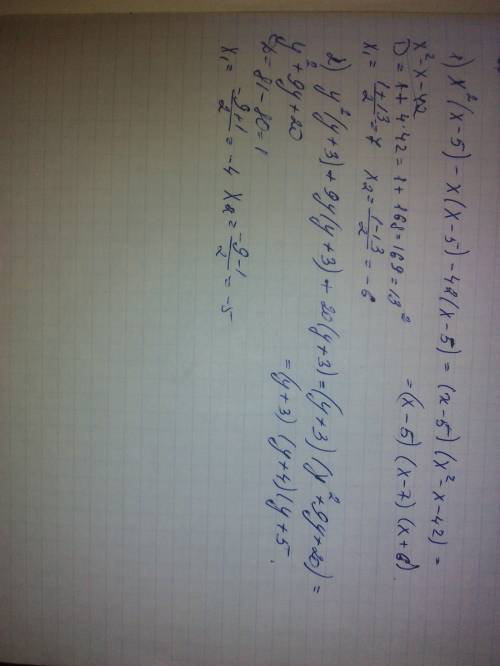 1) x²(x-5) - x(x-5) - 42(x-5) = (x-5)(x²-x-42) =
x²-x-42
D = 1 + 4·42 = 1 + 168 = 169 = 13² = (x-5)(x-7)(x+6).
x₁ = (1+13)/2 = 7 x₂ = (1-13)/2 = -6
2) y²(y+3) + 9y(y+3) + 20(y+3) = (y+3)(y²+9y+20) =
y²+9y+20 = (y+3)(y+4)(y+5.
D = 81 - 80 = 1
x₁ = (-9+1)/2 = -4 x₂ = (-9-1)/2 = -5